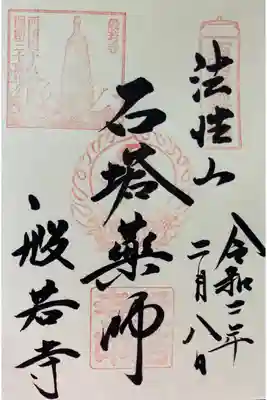 法性山
令和二年
二月八日
石塔薬師
般若寺